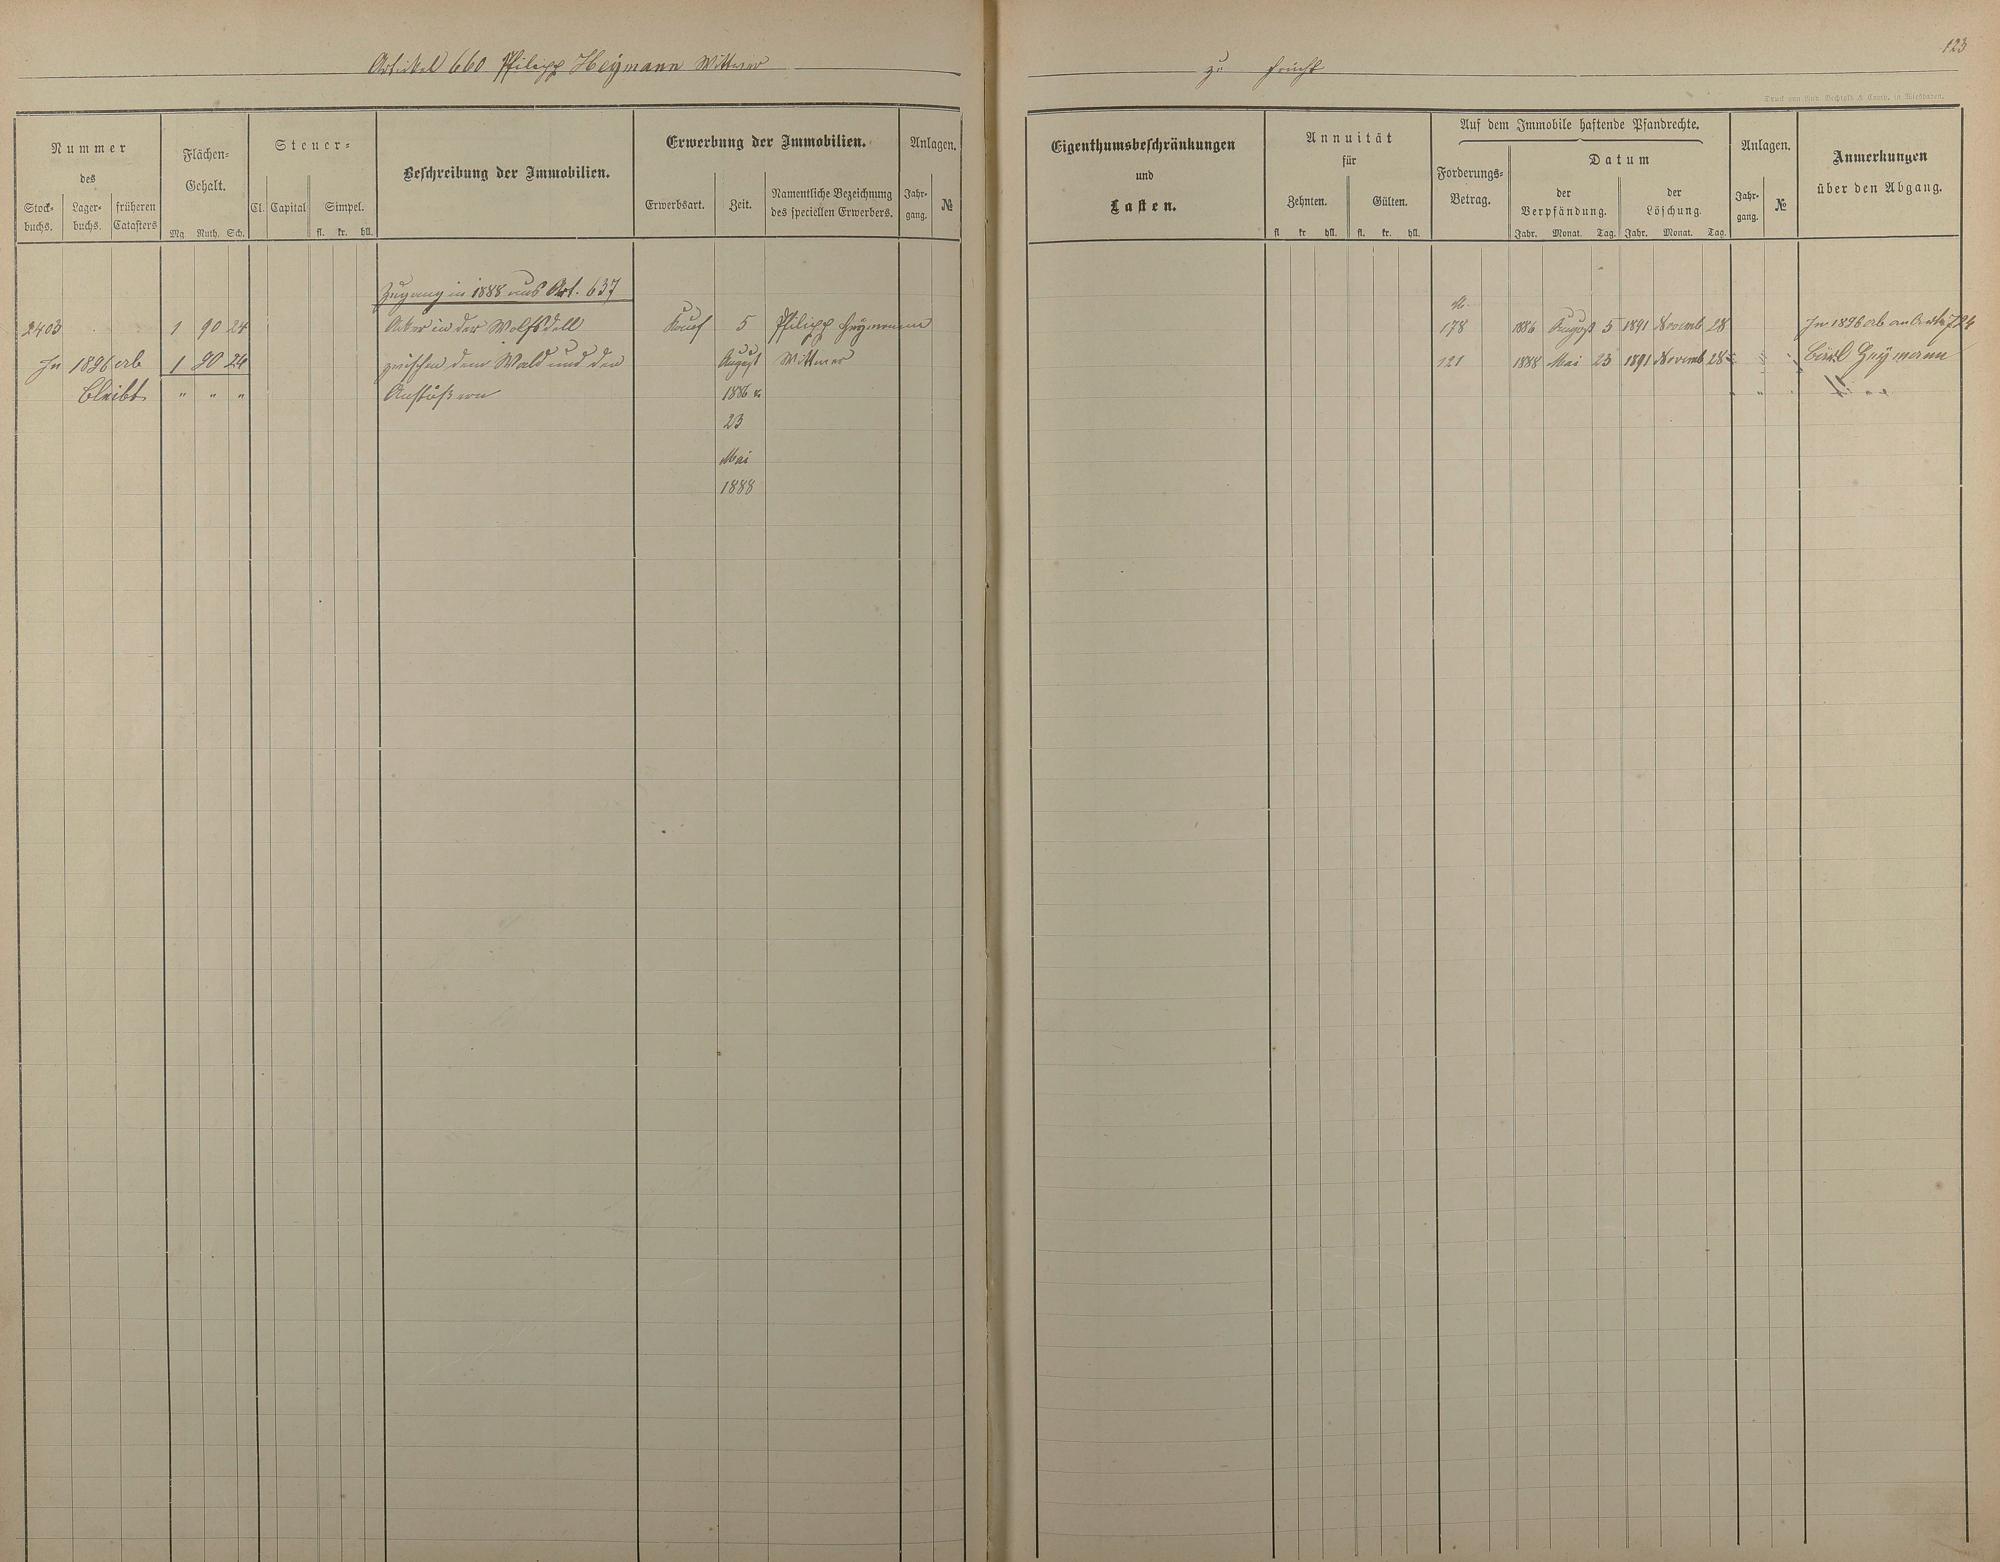 Artikel 660 Philipp Heymann Wittwer
zu Frücht
123
Druck von Rud. Bechtold & Comp. in Wiesbaden.
Nummer
des
Stock-
buchs.
Lager-
buchs.
früheren
Catasters
Flächen-
Gehalt.
Mg Ruth. Sch.
Steuer-
Cl. Capital Simpel.
fl. kr. hll.
Beschreibung der Immobilien.
Erwerbung der Immobilien.
Erwerbsart. Zeit.
Namentliche Bezeichnung
des speciellen Erwerbers.
Anlagen.
Jahr-
gang.
№
Eigenthumsbeschränkungen
und
Lasten.
Annuität
für
Zehnten. Gülten.
fl kr hll. fl. kr. hll.
Auf dem Immobile haftende Pfandrechte.
Forderungs-
Betrag.
Datum
der
Verpfändung.
der
Löschung.
Jahr. Monat. Tag. Jahr. Monat. Tag.
Anlagen.
Jahr-
gang.
№
Anmerkungen
über den Abgang.
Zugang in 1888 aus Art. 637
2403 1 90 24 Acker in der Wolfsdell Kauf 5 Philipp Heymann
In 1896 ab 1 90 24 zwischen dem Wald und den August Wittwer
bleibt " " " Anstößern 1886 u.
23
Mai
1888
M.
178 1886 August 5 1891 Novemb 28 In 1896 ab an Artk 724
121 1888 Mai 23 1891 Novemb 28 Carl Heymann